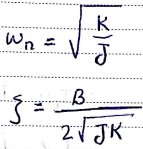 ωn = √(K/J)
ξ = B/(2√(JK))